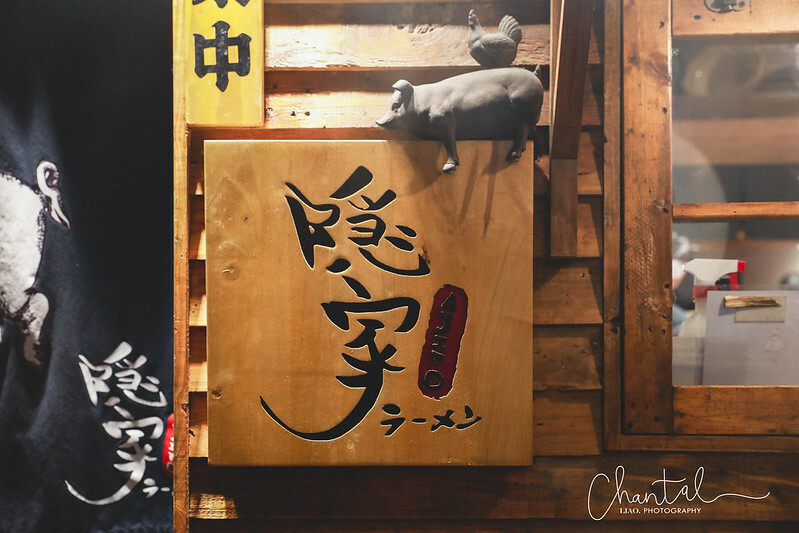 中
隱家
ラーメン
隱家
ラ
Chantal
LIAO. PHOTOGRAPHY